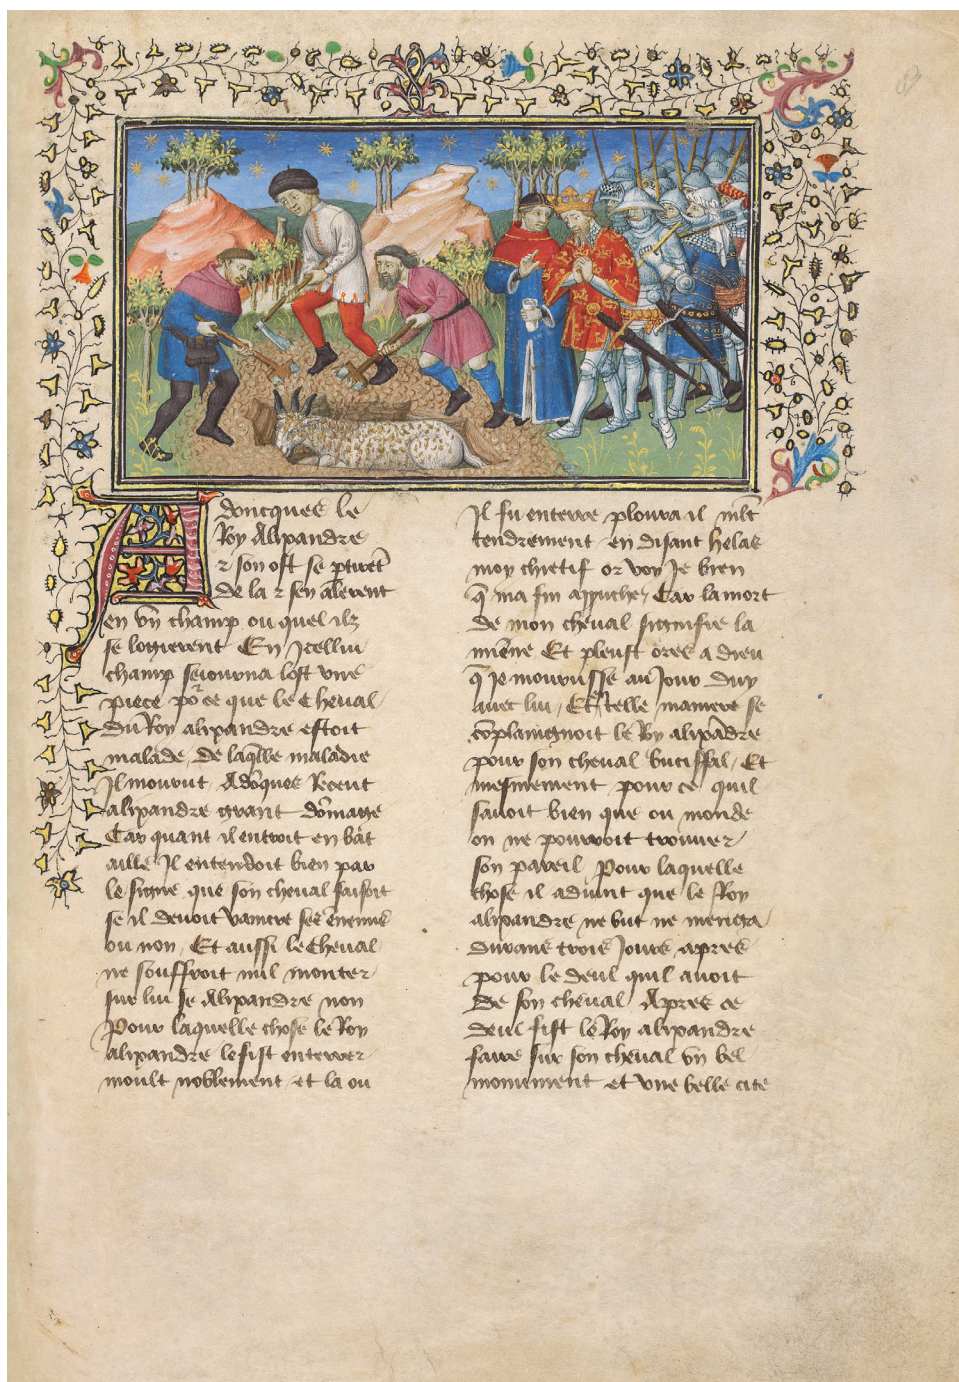 Adoncques le
Roy Alixandre
⁊ son ost se ptiret̄
de la ⁊ sen alerent
en vn̄ champ ou quel ilz
se logierent En Icellui
champ seiourna lost vne
piece po᷑ ce que le cheual
du Roy alixandre estoit
malade, de laq̄lle maladie
Il mourut Adōques Receut
alixandre grant dōmage
Car quant il entroit en bat
aille Il entendoit bien par
le signe que son cheual faisoit
se il deuoit vaincre ses ēnemis
ou non, Et aussi le cheual
ne souffroit nul monter
sur lui se Alixandre non
Pour laquelle chose le Roy
alixandre le fist enterrer
moult noblement et la ou
Il fu enterre ploura il mlt̄
tendrement en disant helas
moy chietif or voy Je bien
q̄ ma fin approche, Car la mort
de mon cheual signifie la
mienne Et pleust ores a dieu
q̄ Je mourusse au Jour duy
auec lui, En telle maniere se
cōplaingnoit le Roy alixādre
pour son cheual bucifal, Et
mesmement pour ce quil
sauoit bien que ou monde
on ne pourroit trouuer
son pareil Pour laquelle
chose il aduint que le Roy
alixandre ne but ne menga
durans trois Jours apres
pour le deul quil auoit
De son cheual Apres ce
deul fist le Roy alixandre
faire sur son cheual vn̄ bel
monument et vne belle cite